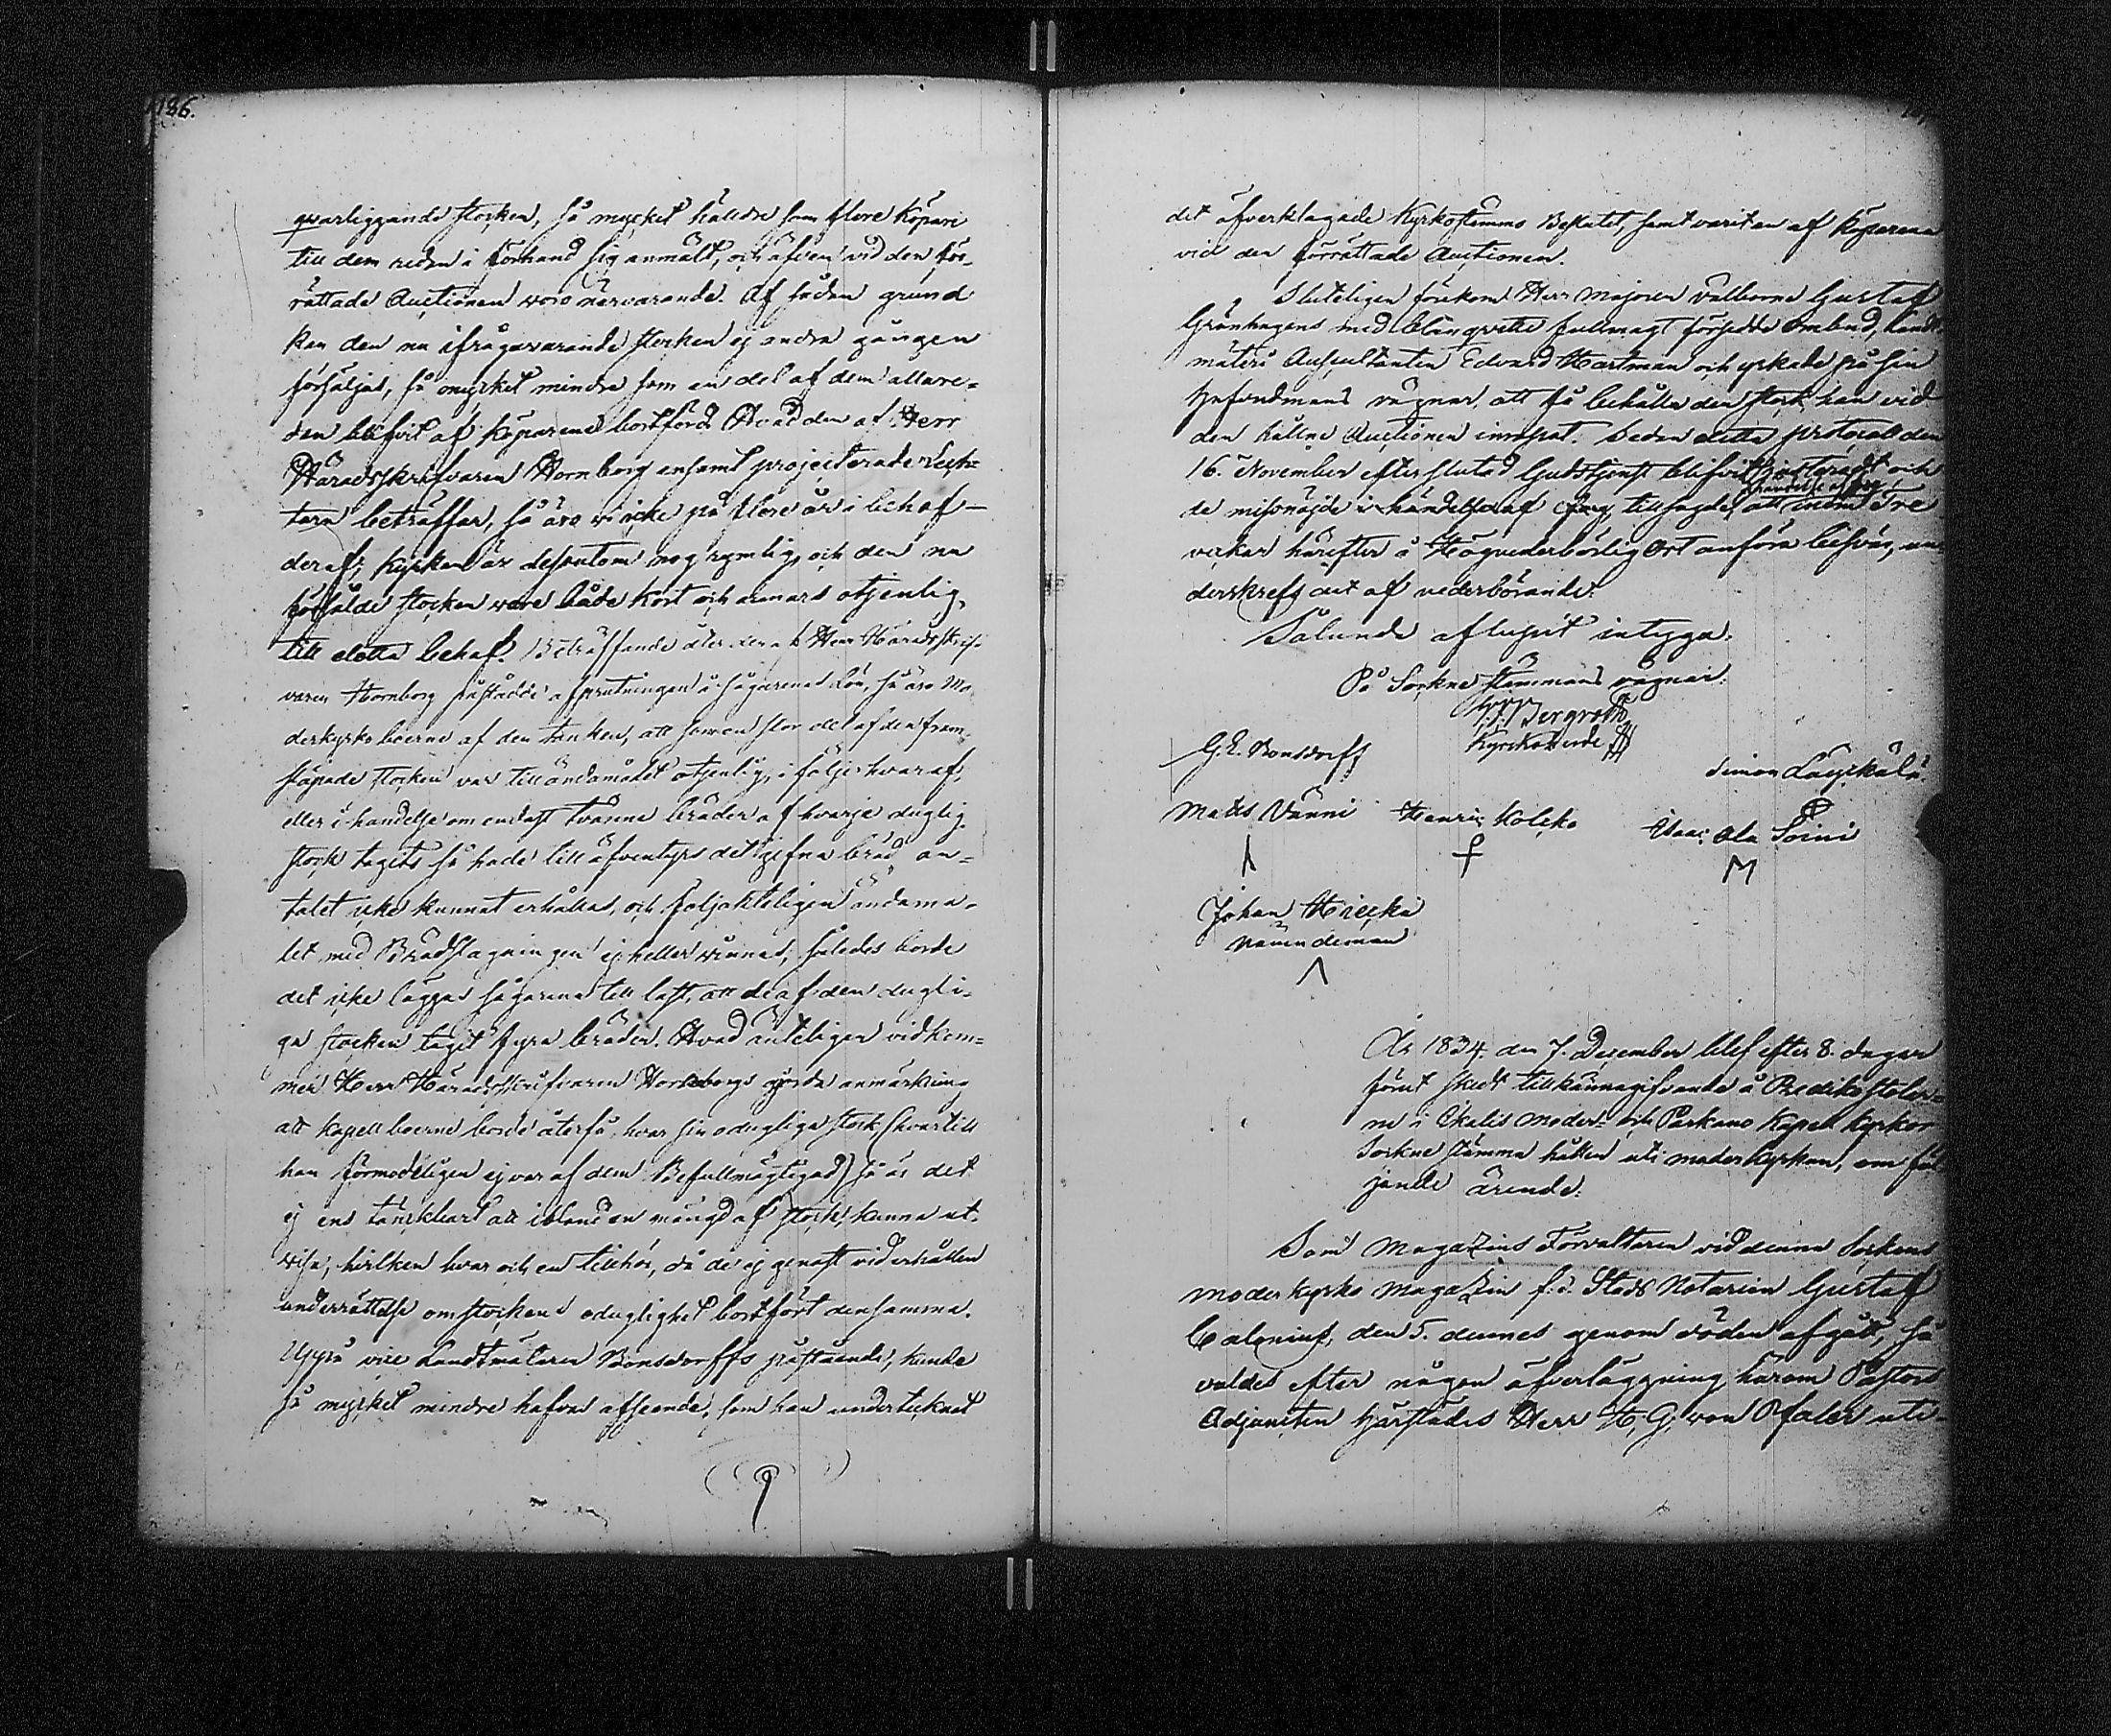 186.
qvarliggande stocken, så mycket hälldre som flere Köpare
till dem redan i förhand sig anmält, och äfven vid den för-
rättade Auctionen voro närvarande. Af sådan grund
kan den nu ifrågavarande stocken ej andra gången
försäljas, så mycket mindre som en del af dem allare-
dan blifvit af Köparene bortförd. Hvad den af Herr
Häradsskrifvaren Hornborg ensamt projecterade
beträffar, så äro vi icke på flere år i behof
deraf; Kyrkan är dessutom nog rymlig, och den nu
försålde stocken vore både kort och annars otjenlig,
till detta behof. Beträffande åter den af Herr Häradsskrif-
varen Hornborg påstådde afprutningen å sågarenas lön, så äro Mo-
derkyrkoboerne af den tanken, att som en stor del af den fram-
släpade stocken var till ändamålet otjenlig, i följe hvaraf,
eller i händelse om endast tvänne bräder af hvarje duglig
stock tagits så hade till äfventyrs det gifna bräd an-
talet icke kunnat erhållas, och följakteligen ändamå-
let med Brädslagningen ej heller vunnes; således borde
det icke läggas sågarena till last, att de af den dugli-
ga stocken tagit fyra bräder. Hvad änteligen vidkom-
mer Herr Häradsskrifvaren Hornborgs gjorda anmärkning
att kapellboerne borde återfå hvar sin odugliga stock (hvartill
han förmodeligen ej var af dem Befullmägtigad) så är det
ej ens tänckbart att ibland en mängd af stock, kunna ut-
visa, hvilken hvar och en tillhör, då de ej genast vid erhållen
underrättelse om stockens oduglighet bortfört densamma.
Uppå vice Landtmätaren Bonsdorffs påstående, kunde
så mycket mindre hafvas afseende, som han undertecknat
det öfverklagade Kyrkostämmo Beslutet, samt varit en af Köparena
vid den förrättade Auctionen.
Sluteligen förekom Herr Majoren Välborne Gustaf
Grönhagens med blanqvette fullmagt försedde ombud, Landt-
mäteri Auscultanten Edvard Hartman och yrkade på sin
Hufvudmans vägnar, att få behålla den stock han vid
den hållne Auctionen inropat. Sedan detta protocoll den
16. November efter slutad Gudstjenst blifvit justeradt och
de missnöjde i händelse af tillsagde, att inom Tre
veckor härefter å Högvederbörlig Ort anföra besvär, un-
derskrefs det af vederbörande.
Sålunda aflupit intyga.
På Sockne Stämmans vägnar:
Bergroth
Kyrkoherde
G. E. Bonsdorff
Simon Läyskälä
Matts Vänni Henric Kolcko Isac Ala Soini
Johan Hiecka
Nämndeman
År 1834 den 7. December blef efter 8. dagar
förut skedt tillkännagifvande å Predikstolar-
ne i Ikalis Moder- och Parkano Kapell kyrkor
Sockne stämma hållen uti moderkyrkan, om föl-
jande ärende.
Som Magazins Förvaltaren vid denna Sockens
Moderkyrko Magazin f.d. Stads Notarien Gustaf
Calonius, den 5. dennes genom döden afgått, så
valdes efter någon öfverläggning härom Pastors
Adjuncten härstädes Herr H. G. von Pfaler uti-